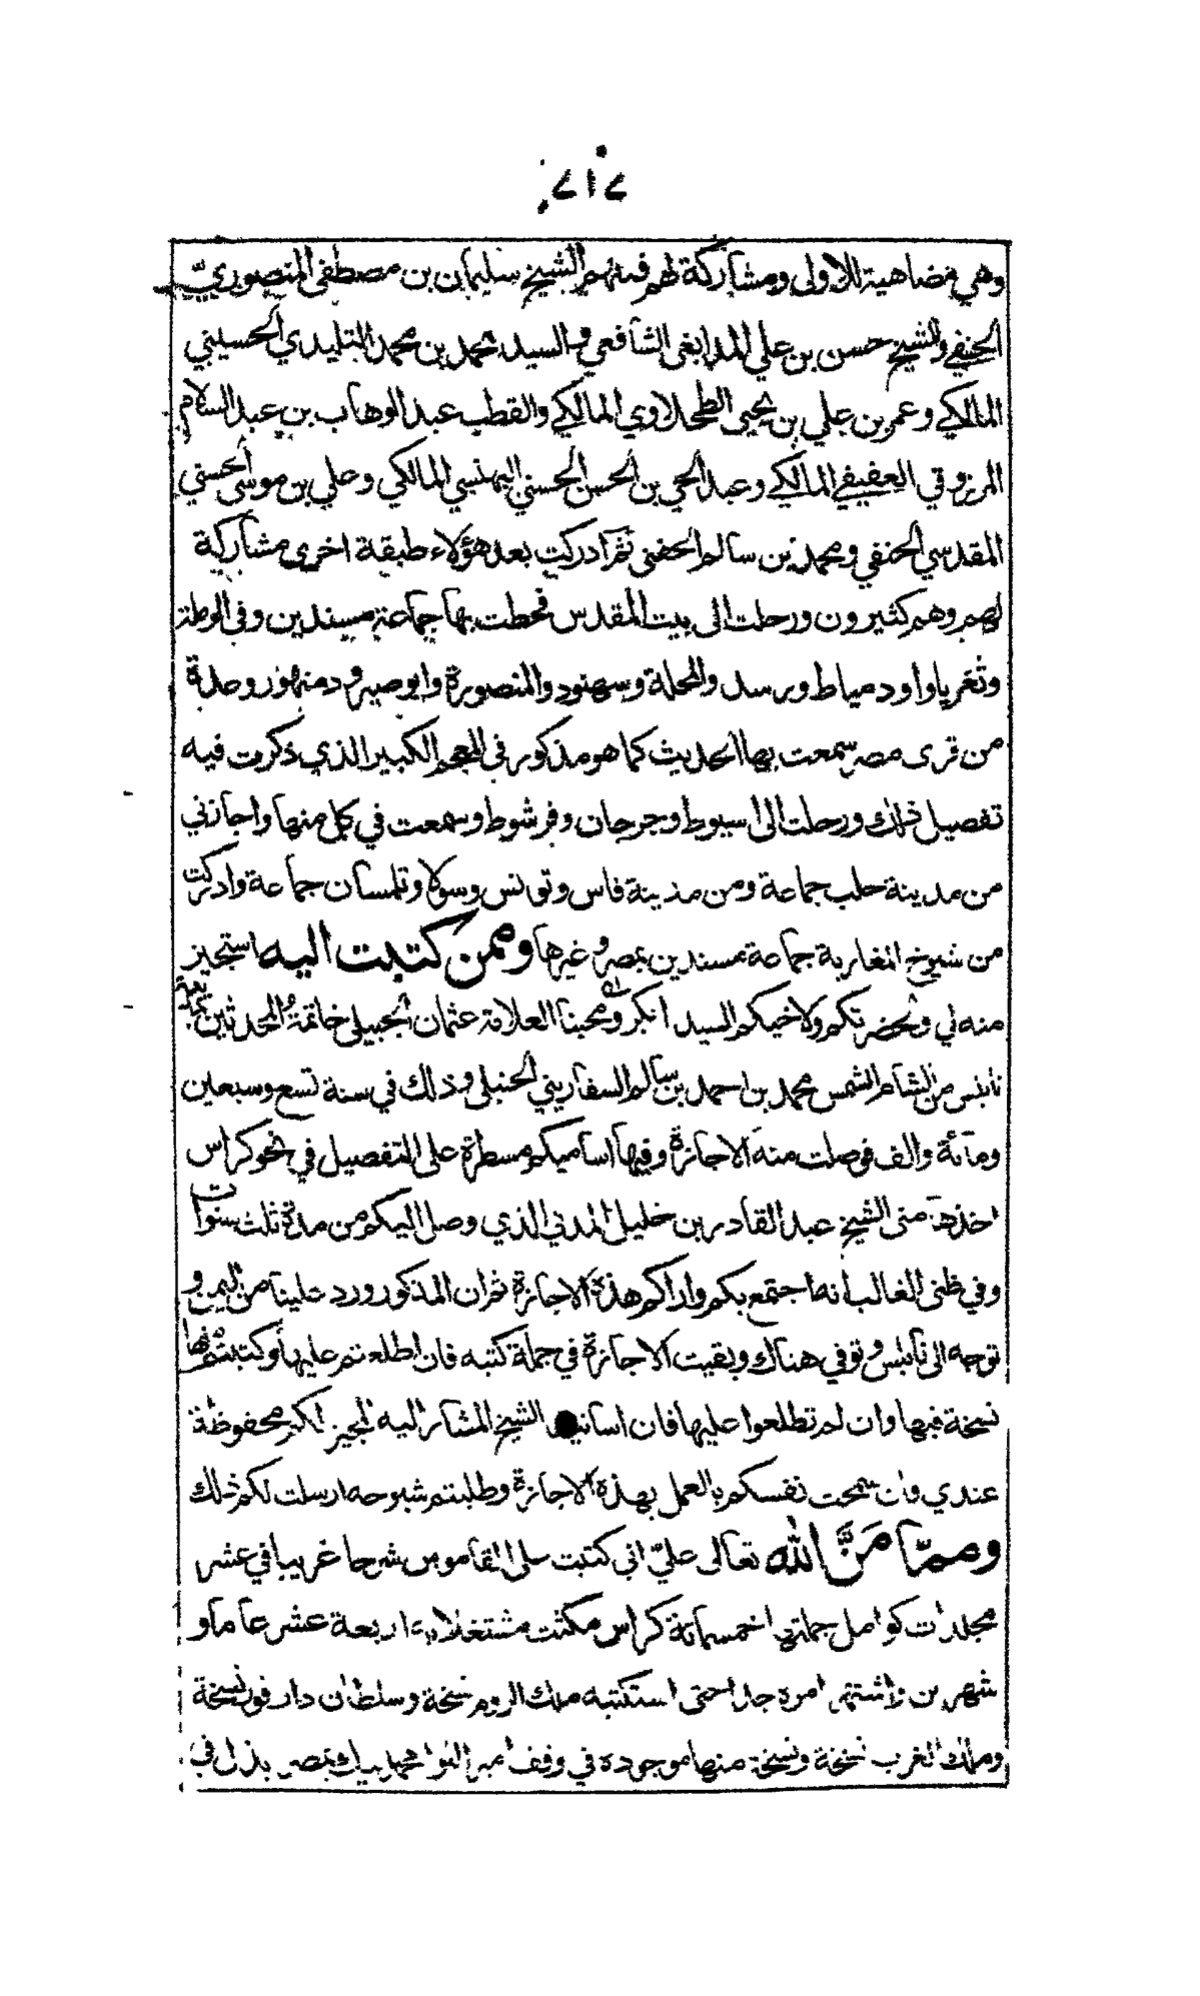 ٢١٢
وهي مضاهية للاولى ومشاركة لهم فمنهم الشيخ سليمان بن مصطفى المنصوري
الحنفي والشيخ حسن بن علي المدابغى الشافعي والسيد محمد بن محمد التليدي الحسيني
المالكي وعمر بن علي بن يحيى الطحلاوي المالكي والقطب عبد الوهاب بن عبد السلام
المرزوقي العفيفي المالكي وعبد الحي بن الحسن الحسني البهنسي المالكي وعلي بن موسى الحسني
المقدسي الحنفي ومحمد بن سالم الحفنى ثم ادركت بعد هؤلاء طبقة اخرى مشاركة
لهم وهم كثيرون ورحلت الى بيت المقدس فحطت بها جماعة مسندين وفي الرملة
وثغر يافا ودمياط ورسد والمحلة وسمنود والمنصورة وابوصير ودمنهور وعدة
من قرى مصر سمعت بها الحديث كما هو مذكور في المعجم الكبير الذي ذكرت فيه
تفصيل ذلك ورحلت الى اسيوط وجرجان وفرشوط وسمعت في كل منها واجازني
من مدينة حلب جماعة ومن مدينة فاس وتونس وسلا وتلمسان جماعة وادركت
من شيوخ المغاربة جماعة مسندين بمصر وغيرها وممن كتبت اليه استجيز
منه لي ولحضرتكم ولاخيكم السيد ابكر ومحبنا العلامة عثمان الجبيلى خاتمة المحدثين
نابلس من الشام الشمس محمد بن احمد بن سالم السفاريني الحنبلى وذلك في سنة تسع وسبعين
ومائة والف فوصلت منه الاجازة وفيها اساميكم مسطرة على التفصيل في نحو كراس
اخذها منى الشيخ عبد القادر بن خليل المدني الذي وصل اليكم من مدة ثلث سنوات
وفي ظنى الغالب انه اجتمع بكم واراكم هذه الاجازة ثم ان المذكور ورد علينا من اليمن و
توجه الى نابلس وتوفي هناك وبقيت الاجازة في جملة كتبه فان اطلعتم عليها وكتبتم منها
نسخة فبها وان لم تطلعوا عليها فان اسانيد الشيخ المشار اليه المجيز لكم محفوظة
عندي وان سمحت نفسكم بالعمل بهذه الاجازة وطلبتم شيوخه ارسلت لكم ذلك
ومما مَنَّ الله تعالى عليّ اني كتبت على القاموس شرحا غريبا في عشر
مجلدات كوامل جملتها خمسمائة كراس مكثت مشتغلا به اربعة عشر عاما و
شهرين واشتهر امره جدا حتى استكتبه ملك الروم نسخة وسلطان دارفور نسخة
وملك الغرب نسخة ونسخة منها موجودة في وقف امير اللوا محمد بيك بمصر بذل في